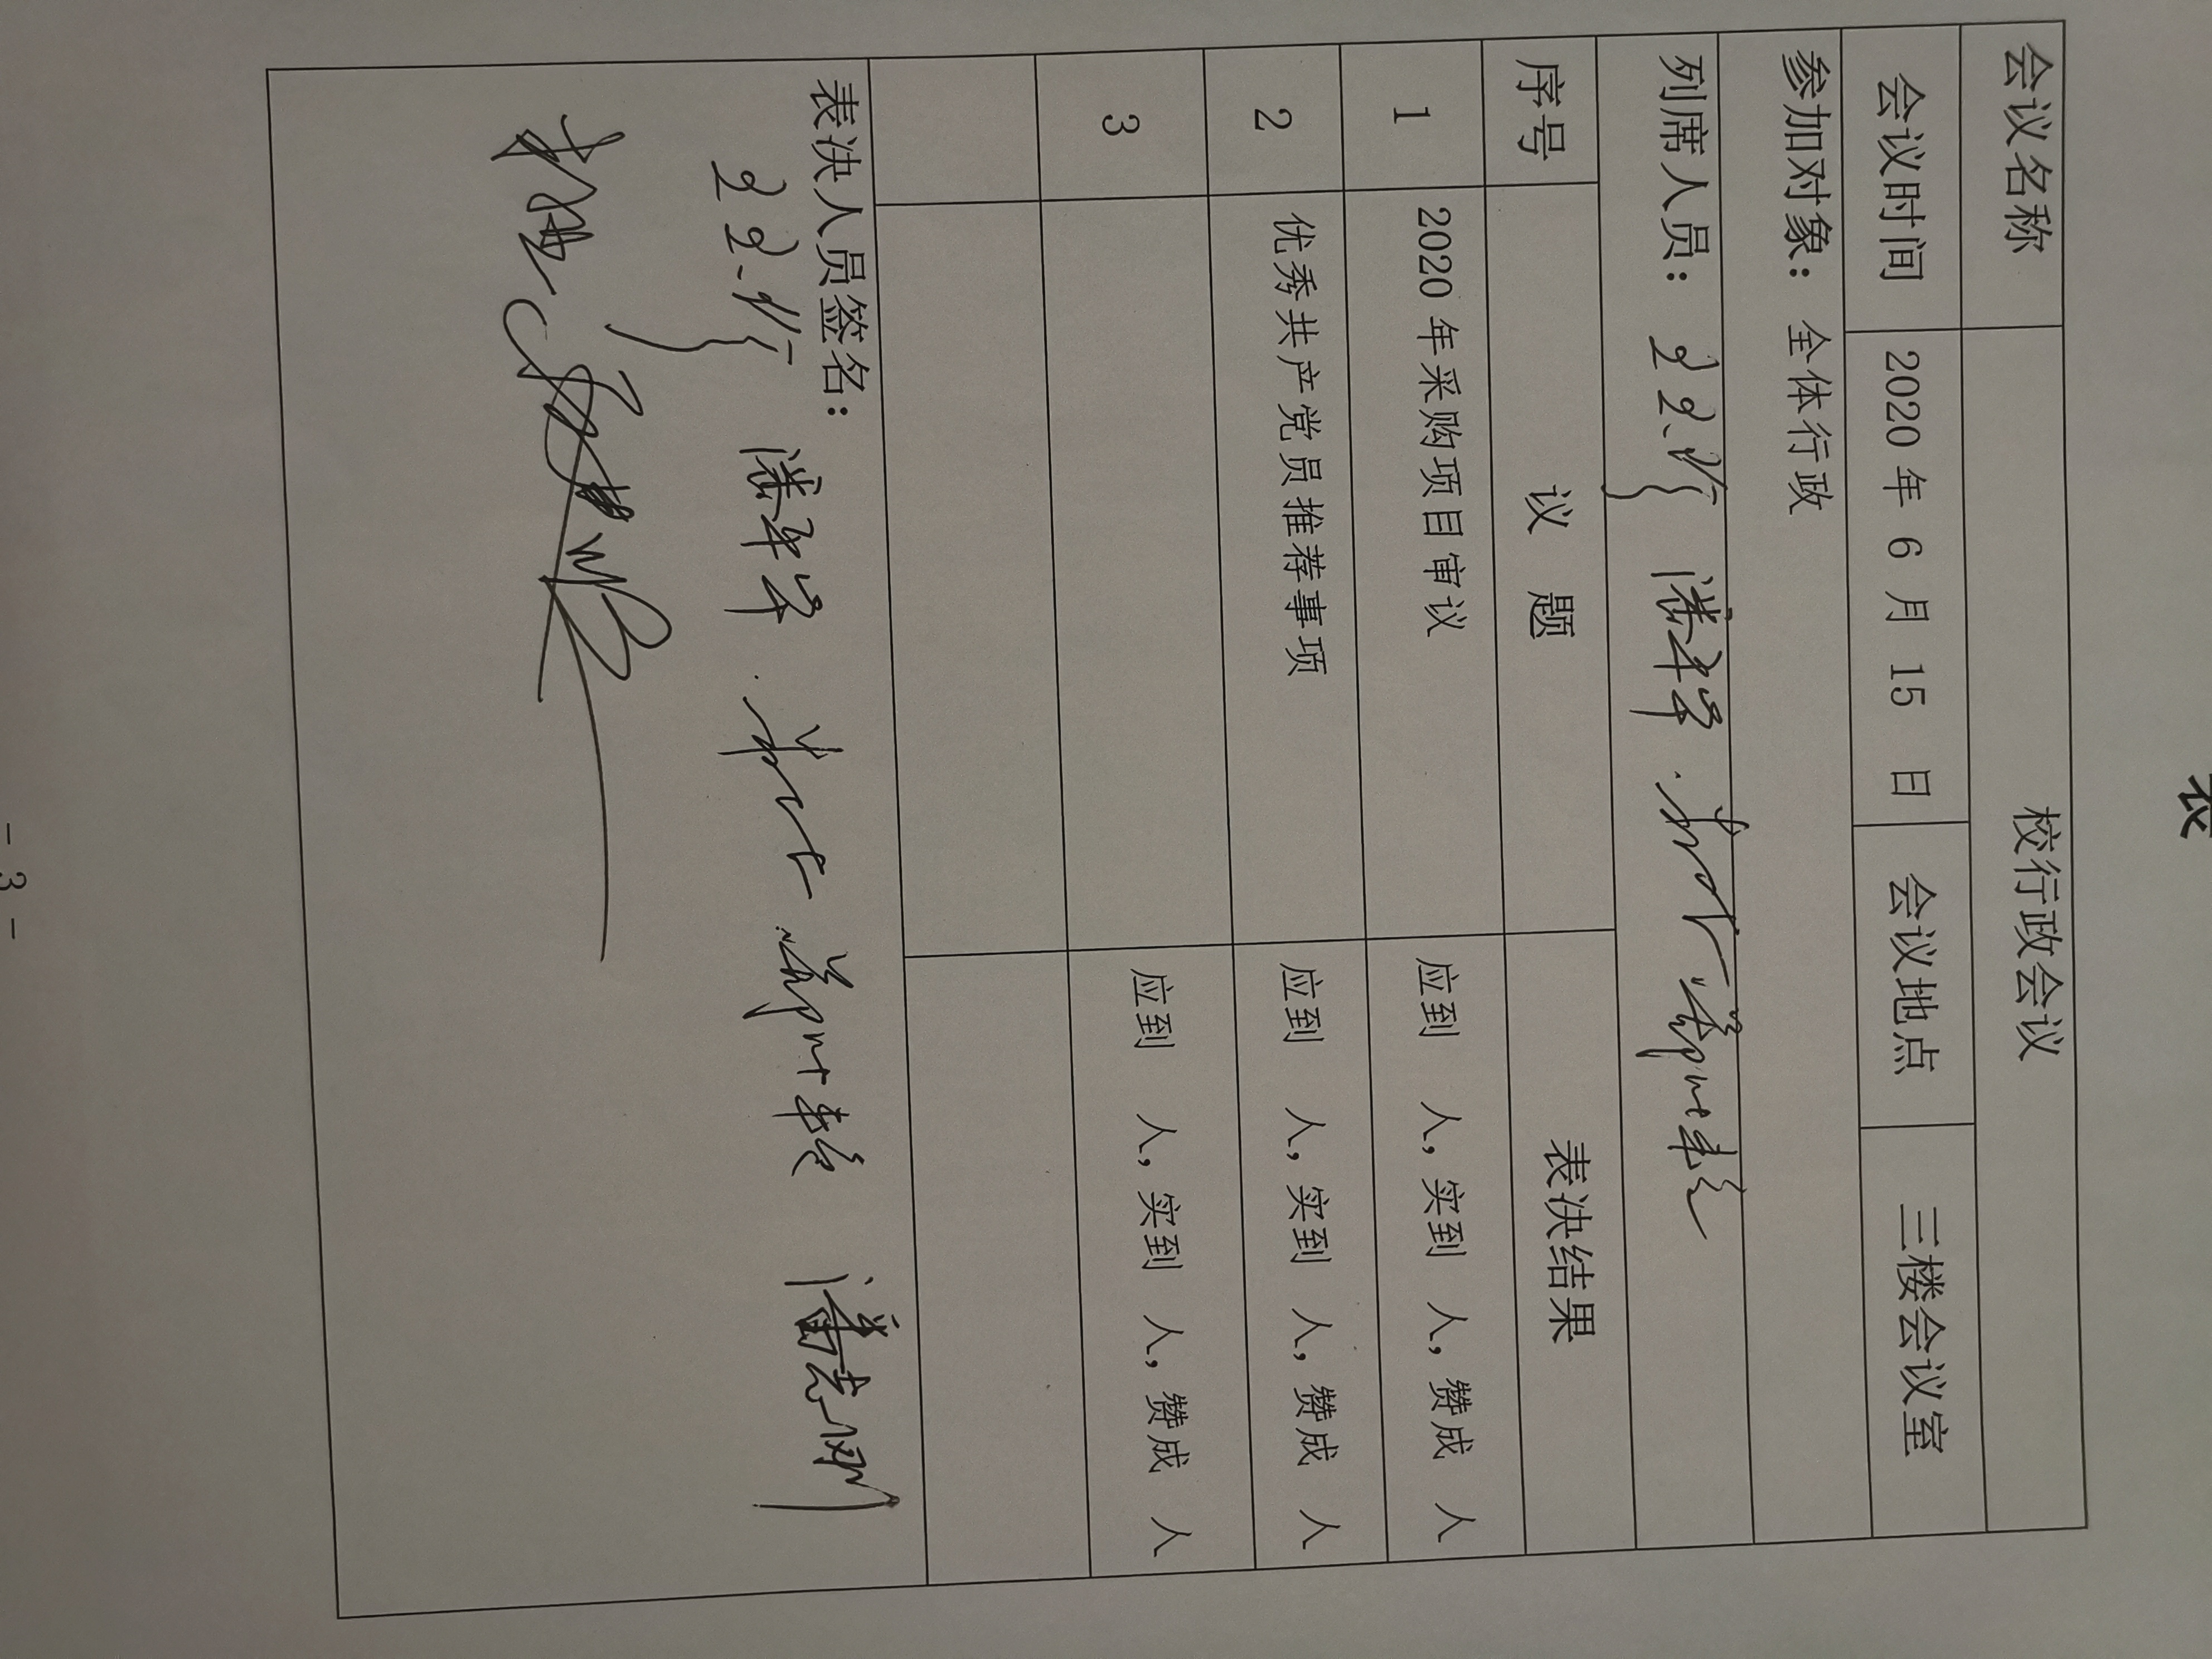 表
会议名称 校行政会议
会议时间 2020 年 6 月 15 日 会议地点 三楼会议室
参加对象：全体行政
列席人员：
序号 议 题 表决结果
1 2020 年采购项目审议 应到 人，实到 人，赞成 人
2 优秀共产党员推荐事项 应到 人，实到 人，赞成 人
3 应到 人，实到 人，赞成 人
表决人员签名：
潘志刚
- 3 -